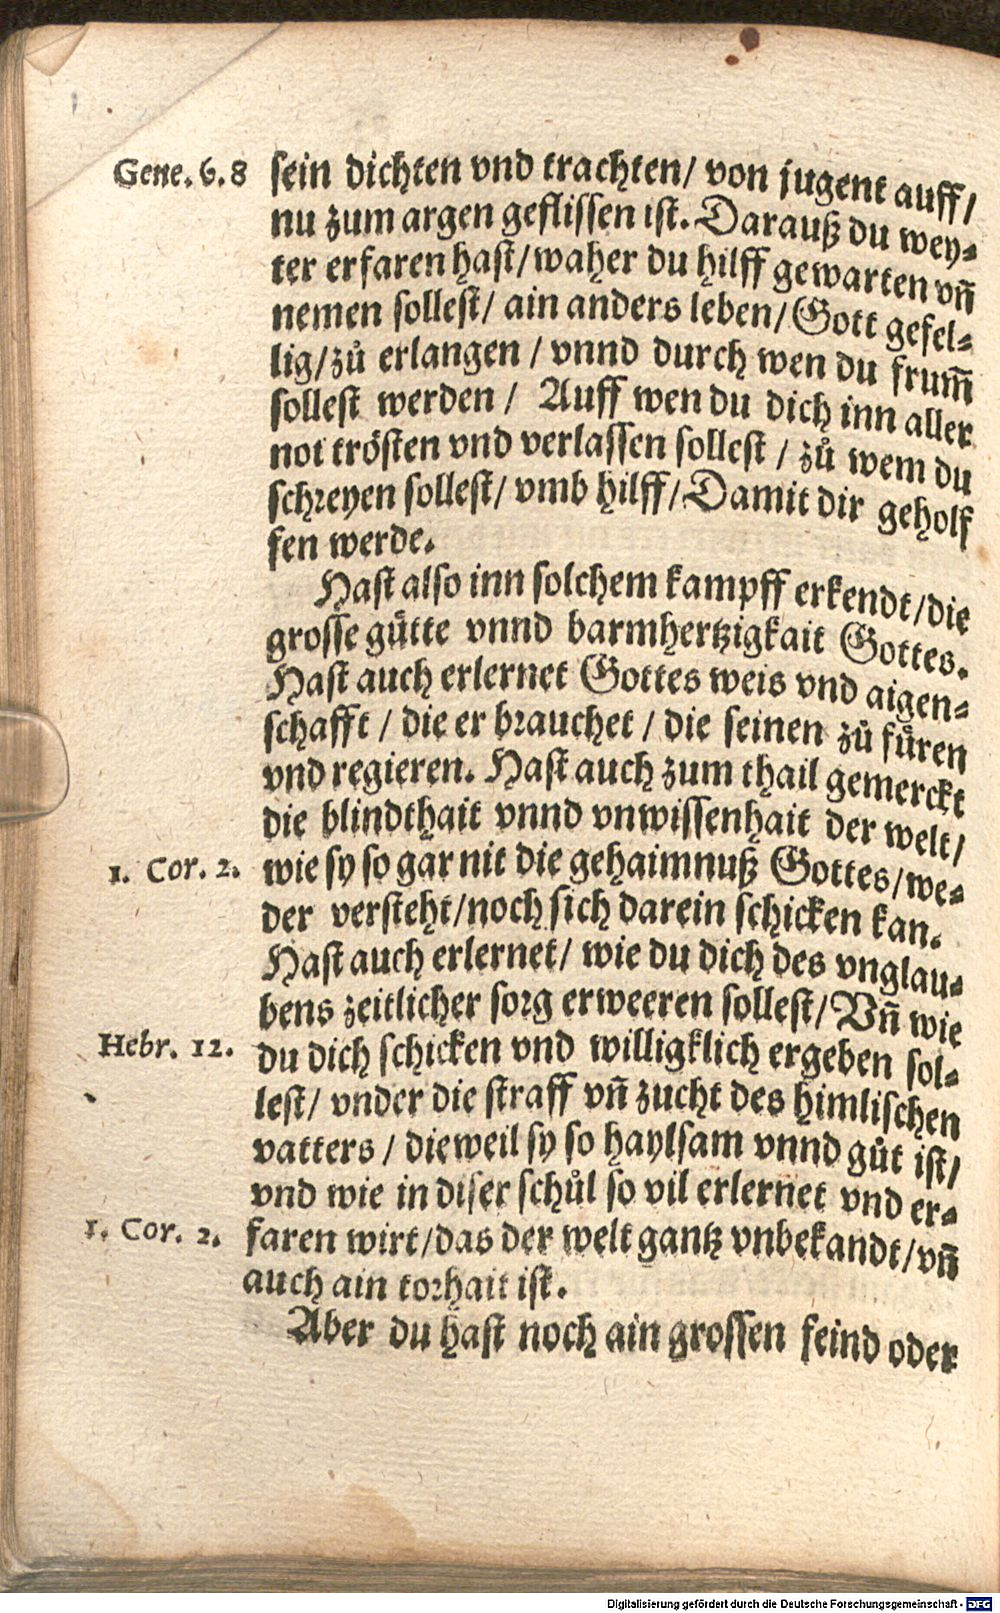 Gene. 6. 8 sein dichten vnd trachten/ von jugent auff/
nu zum argen geflissen ist. Darauß du wey-
ter erfaren hast/ waher du hilff gewarten vñ
nemen sollest/ ain anders leben/ Gott gefel-
lig/ zů erlangen / vnnd durch wen du frum̃
sollest werden / Auff wen du dich inn aller
not trösten vnd verlassen sollest / zů wem du
schreyen sollest/ vmb hilff/ Damit dir geholf
fen werde.
Hast also inn solchem kampff erkendt/ die
grosse gůtte vnnd barmhertzigkait Gottes.
Hast auch erlernet Gottes weis vnd aigen-
schafft / die er brauchet / die seinen zů füren
vnd regieren. Hast auch zum thail gemerckt
die blindthait vnnd vnwissenhait der welt/
1. Cor. 2. wie sy so gar nit die gehaimnuß Gottes/ we-
der versteht/ noch sich darein schicken kan.
Hast auch erlernet/ wie du dich des vnglau-
bens zeitlicher sorg erweeren sollest/ Vñ wie
Hebr. 12. du dich schicken vnd willigklich ergeben sol-
lest/ vnder die straff vñ zucht des himlischen
vatters / dieweil sy so haylsam vnnd gůt ist/
vnd wie in diser schůl so vil erlernet vnd er-
1. Cor. 2. faren wirt/ das der welt gantz vnbekandt/ vñ
auch ain torhait ist.
Aber du hast noch ain grossen feind oder
Digitalisierung gefördert durch die Deutsche Forschungsgemeinschaft - DFG